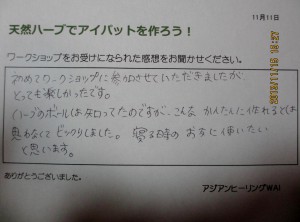 11月11日
天然ハーブでアイパットを作ろう！
ワークショップをお受けになられた感想をお聞かせください。
初めてワークショップに参加させていただきましたが、
とっても楽しかったです。
ハーブのボールは知ってたのですが、こんな かんたんに作れるとは
思わなくて ビックリしました。 寝る時の お友に使いたい
と思います。
ありがとうございました。
アジアンヒーリングWAI